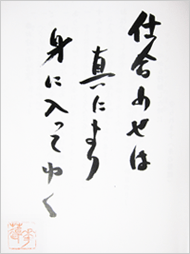 仕合わせは
真により
身に入ってゆく